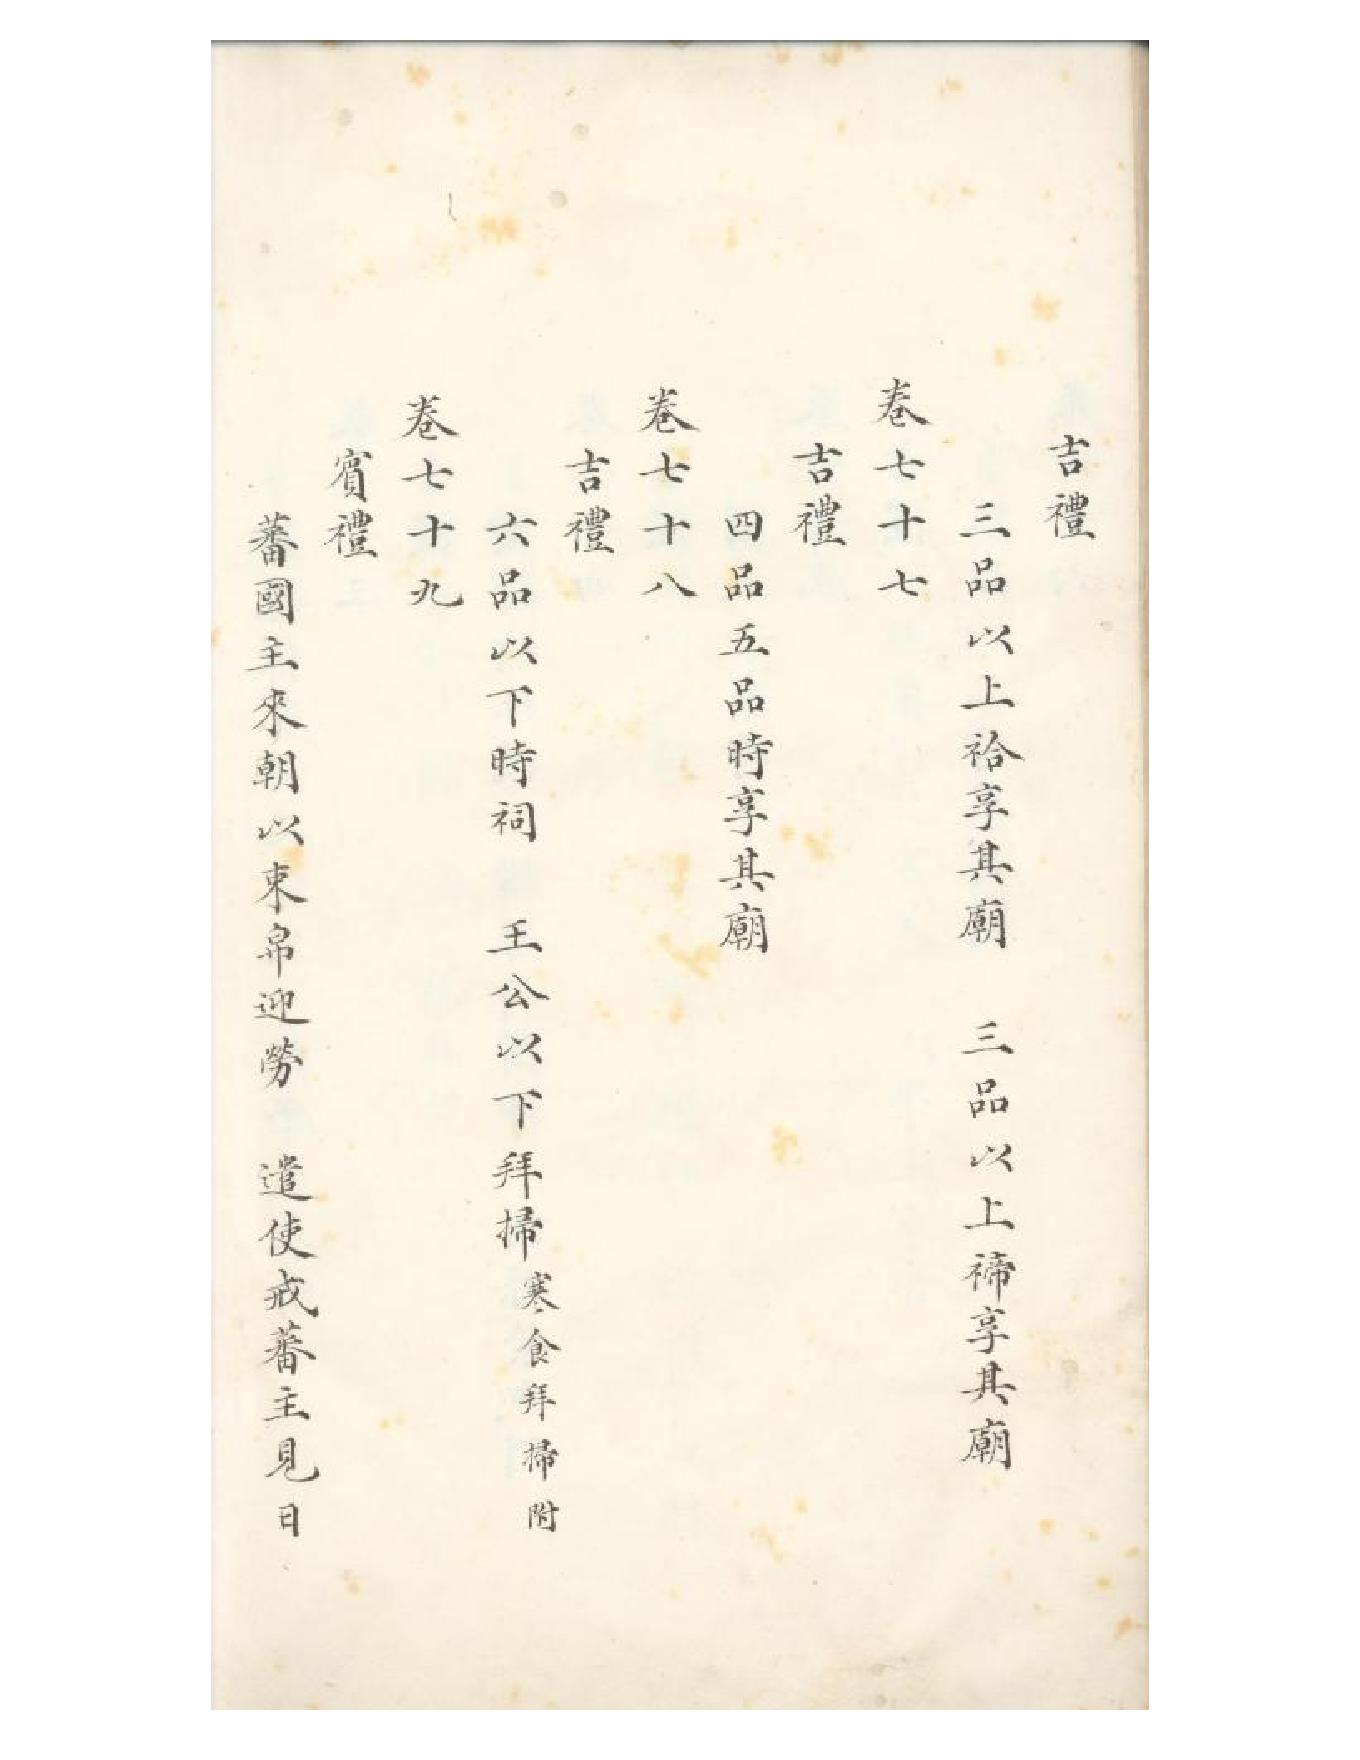 吉禮
三品以上祫享其廟　三品以上禘享其廟
卷七十七
吉禮
四品五品時享其廟
卷七十八
吉禮
六品以下時祠　王公以下拜掃寒食拜掃附
卷七十九
賓禮
蕃國主來朝以束帛迎勞　遣使戒蕃主見日